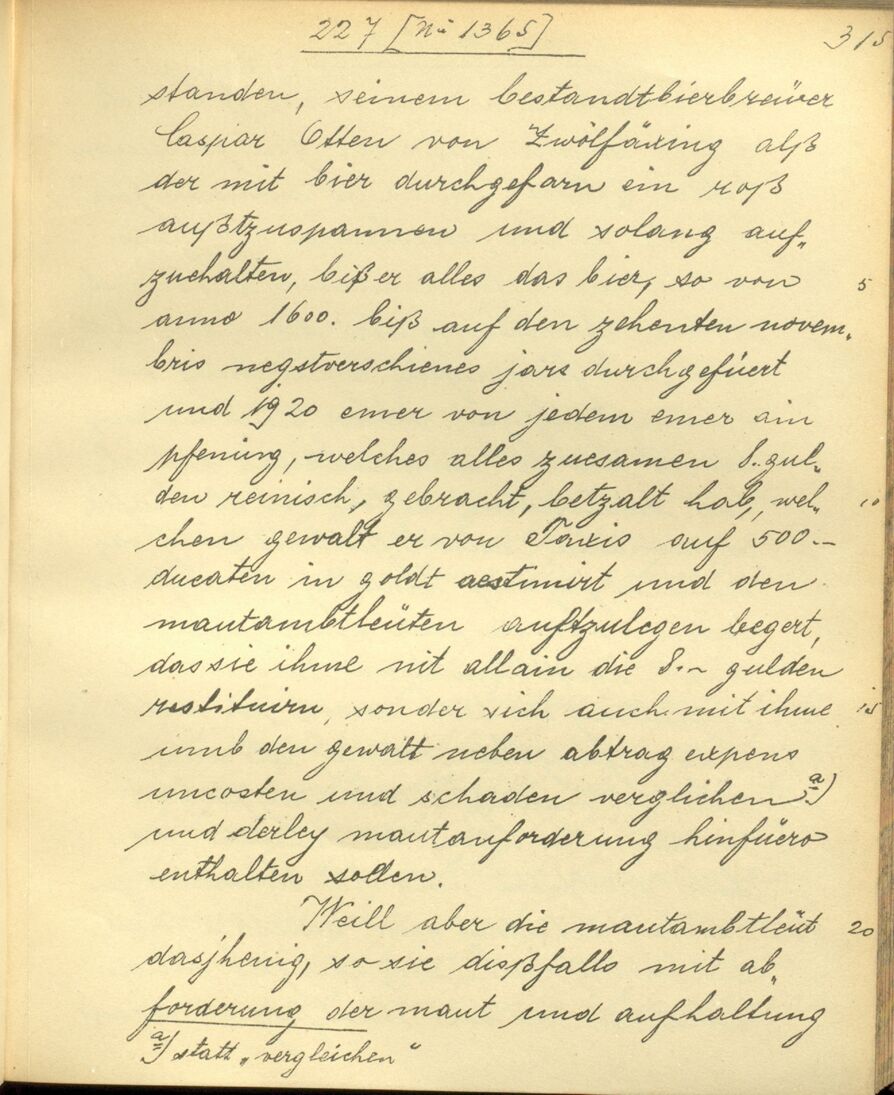 227 [No 1365]
315
standen, seinem bestandtbierbreüer
Caspar Otten von Zwölfäxing alß
der mit bier durchgefarn ein roß
außtzuspannen und solang auf„
zuehalten, biß er alles das bier, so von 5
anno 1600. biß auf den zehenten novem„
bris negstverschienes jars durchgefüert
und 1920 emer von jedem emer ain
pfening, welches alles zuesamen 8. gul„
den reinisch, gebracht, betzalt hab, wel„ 10
chen gewalt er von Taxis auf 500.–
ducaten in goldt aestimirt und den
mautambtleüten auftzulegen begert,
das sie ihme nit allain die 8.– gulden
restituirn, sonder sich auch mit ihme 15
umb den gewalt neben abtrag expens
uncosten und schaden verglichen a)
und derley mautanforderung hinfüero
enthalten sollen.
Weill aber die mautambtleüt 20
dasjhenig, so sie dißfalls mit ab„
forderung der maut und aufhaltung
a) statt „vergleichen“